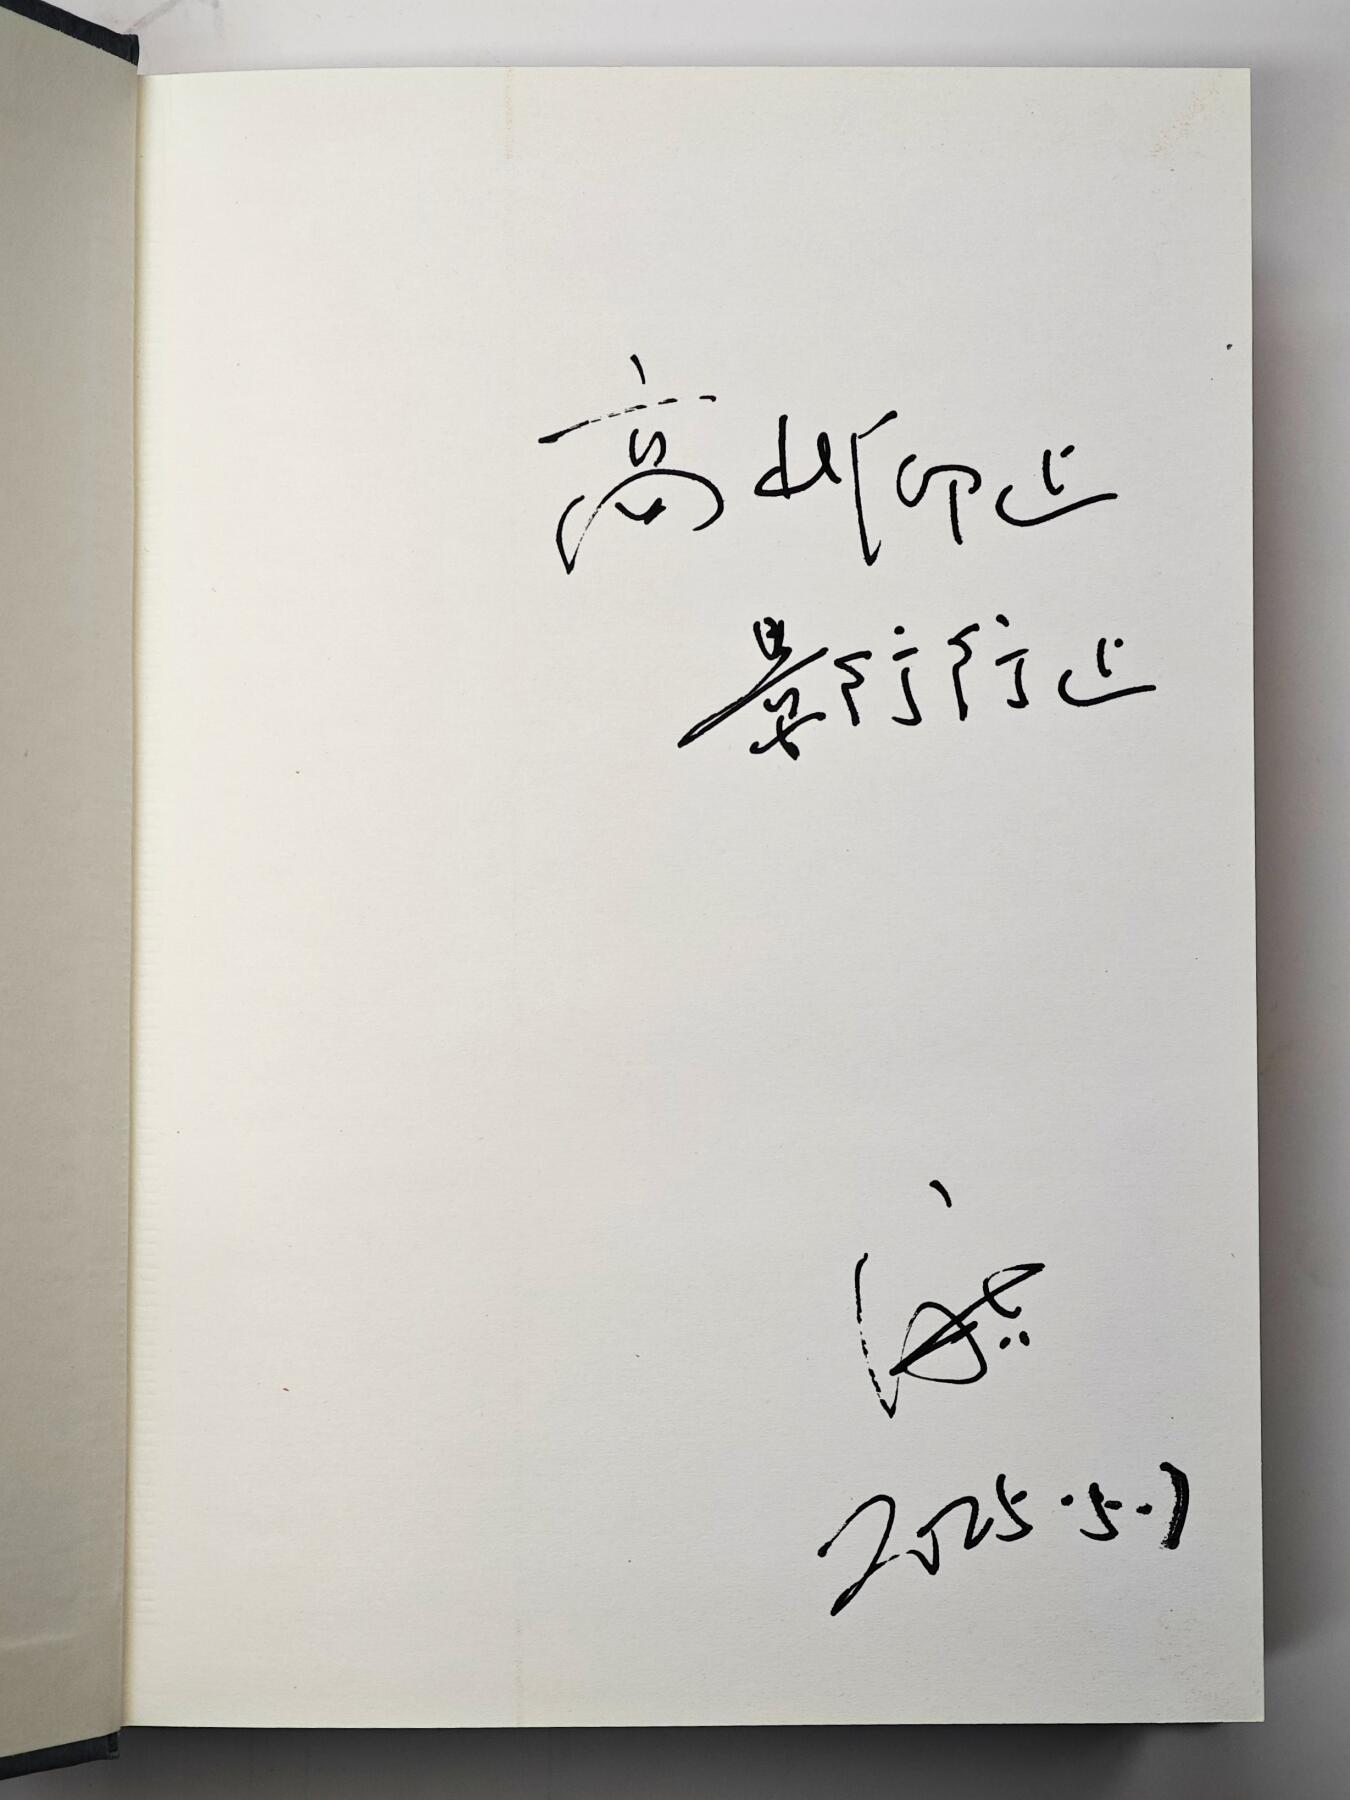 高山仰止
景行行止
2025.5.7